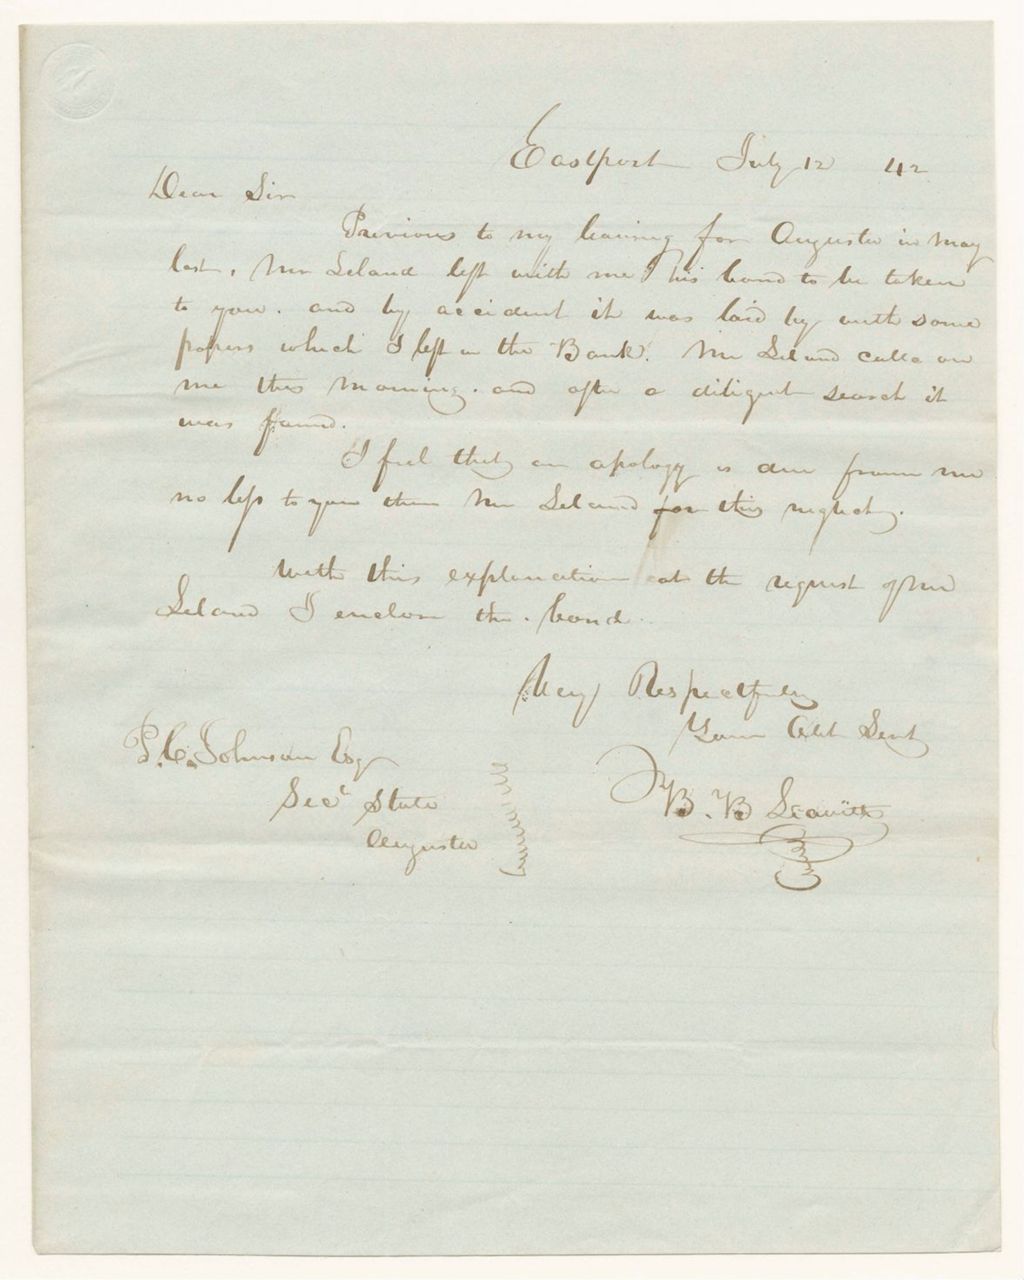 Eastport July 12 42
Dear Sir
Previous to my leaving for Augusta in May
last, Mr Leland left with me his bond to be taken
to you. and by accident it was laid by with some
papers which I left in the Bank. Mr Leland calls on
me this morning. and after a diligent search it
was found.
I feel that an apology is due from me
no less to you than Mr Leland for this neglect.
With this explanation at the request of Mr
Leland I enclose the bond
Very Respectfully
Your Obt Sert
B. B Leavitt
P. C. Johnson Esq
Secy State
Augusta